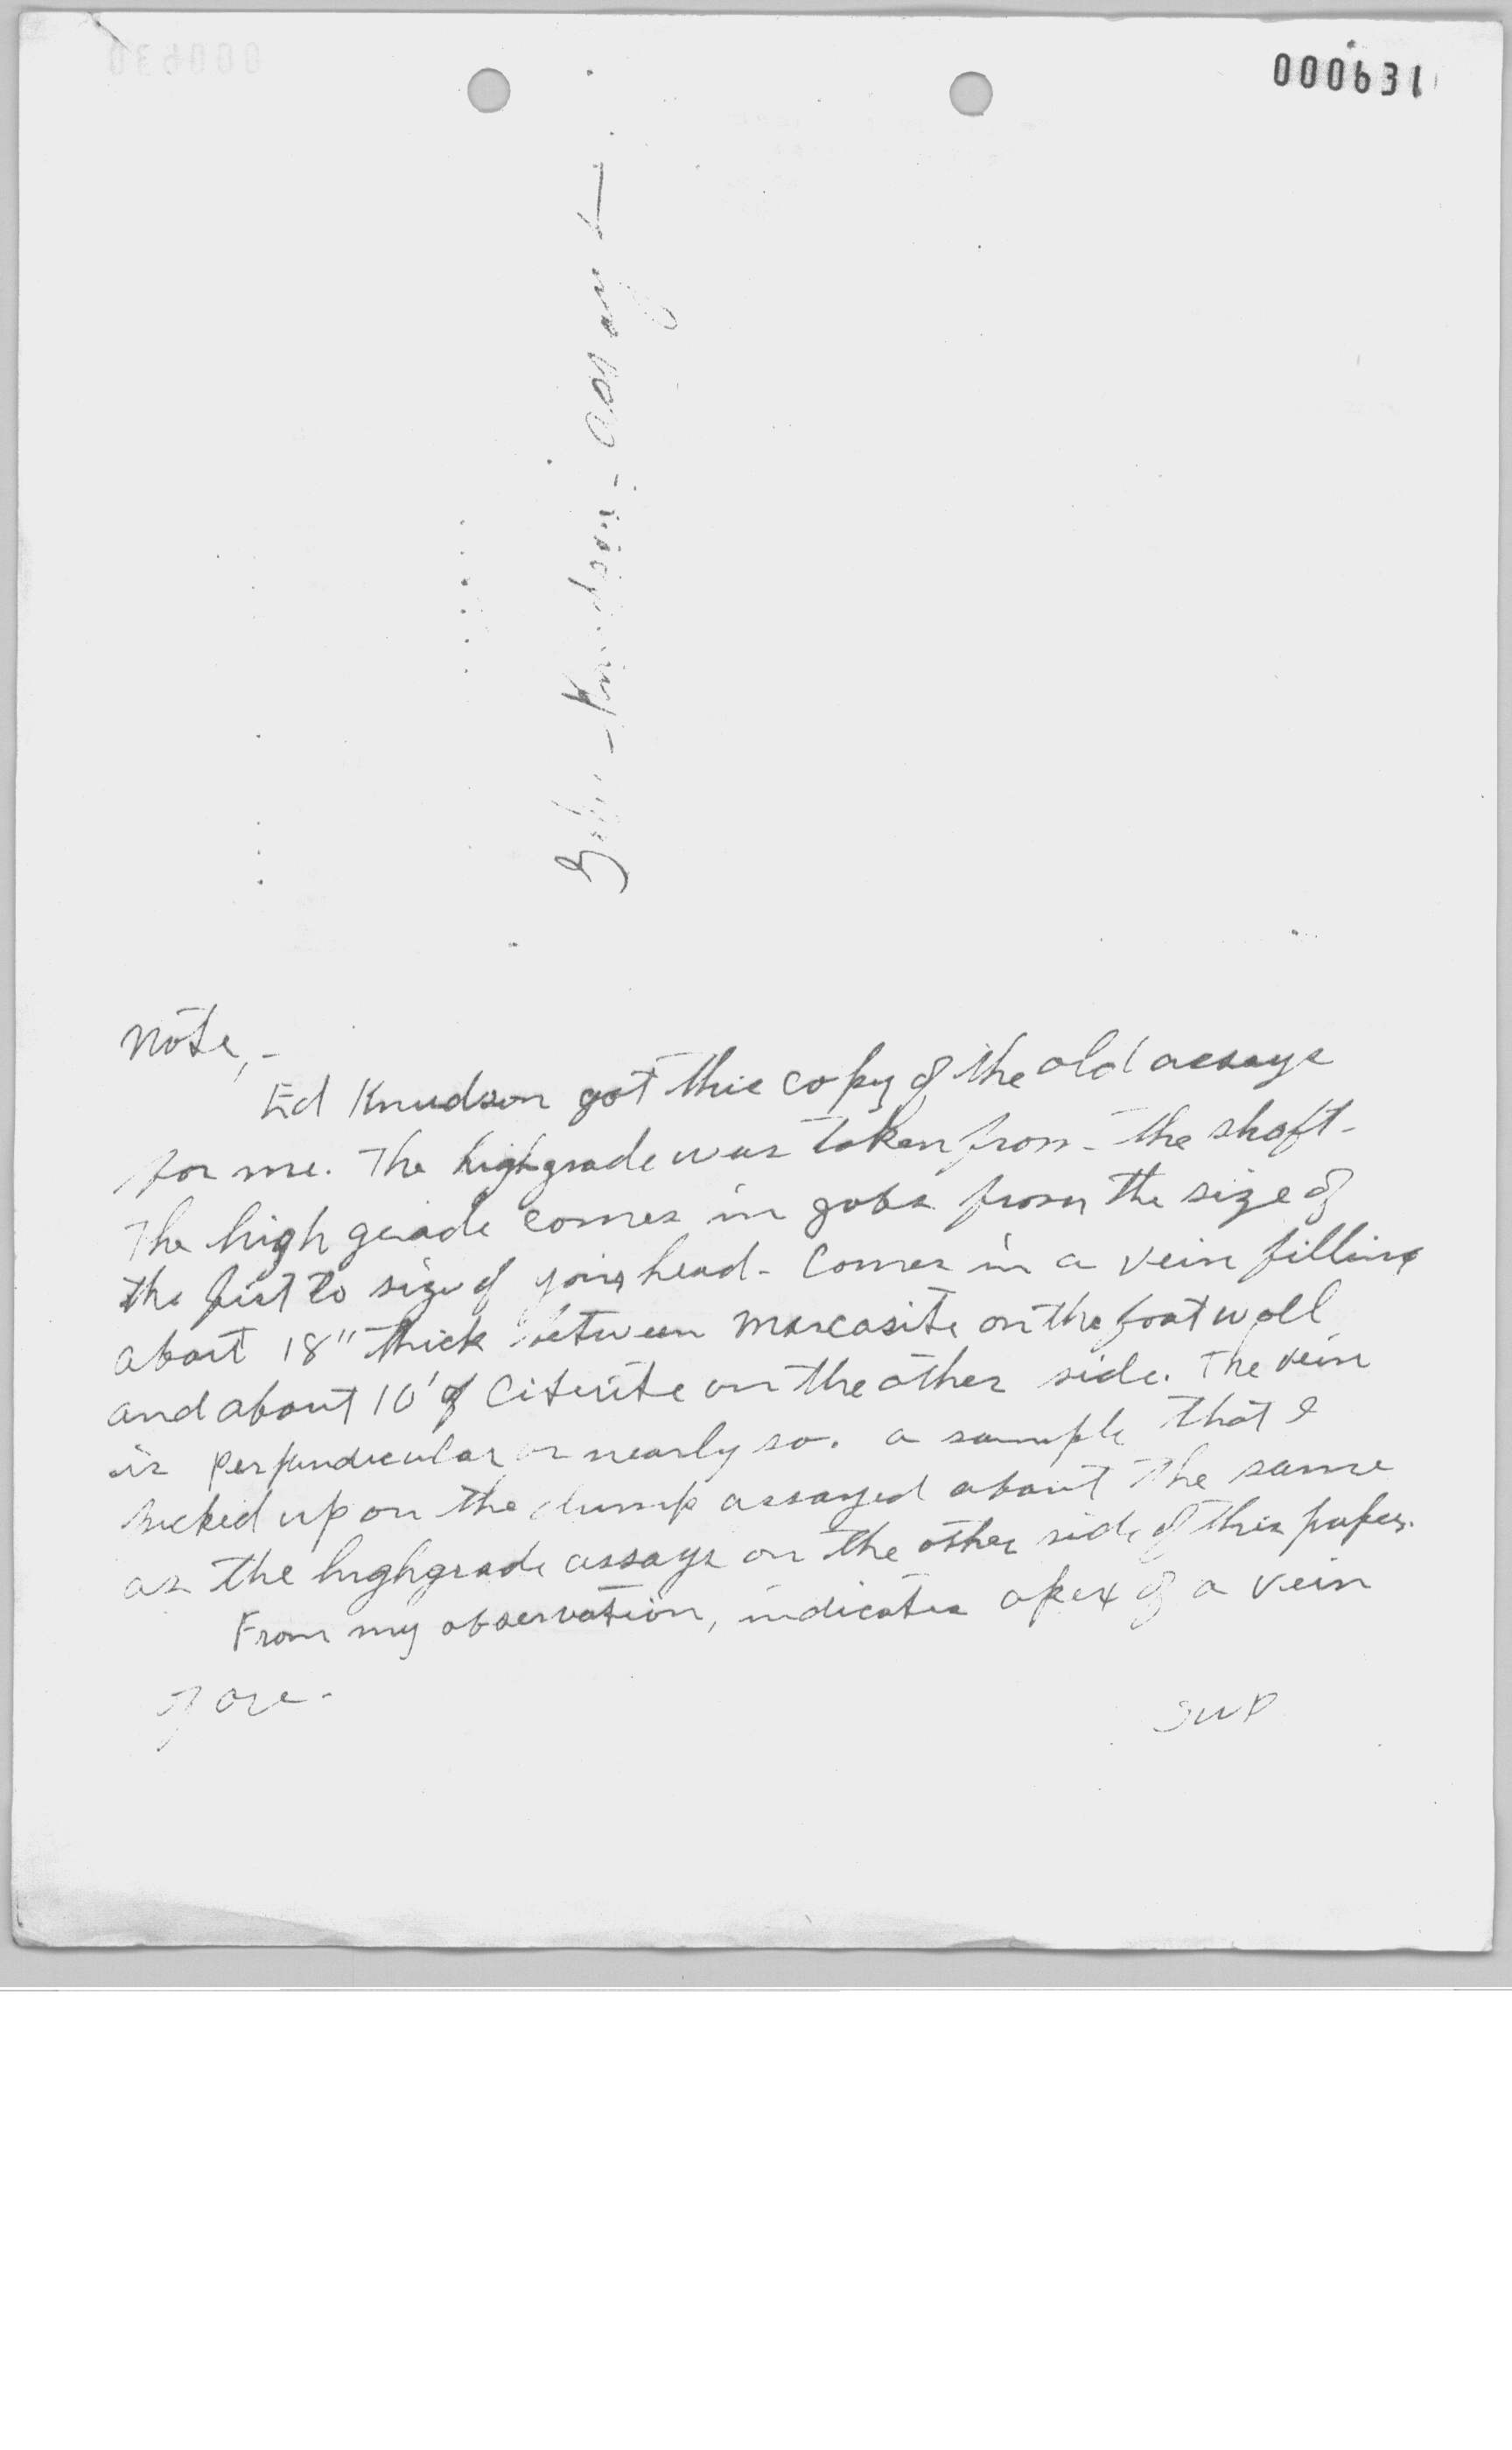 000631
Knudson - assay
Note,-
Ed Knudson got this copy of the old assays
for me. The highgrade was taken from the shaft-
The high grade comes in gobs from the size of
the fist to size of your head- Comes in a vein filling
about 18" thick between Marcasite on the footwall
and about 10' of Citerite on the other side. The vein
is perpendicular or nearly so. a sample that I
picked up on the dump assayed about the same
as the highgrade assays on the other side of this paper.
From my observation, indicates apex of a vein
of ore-